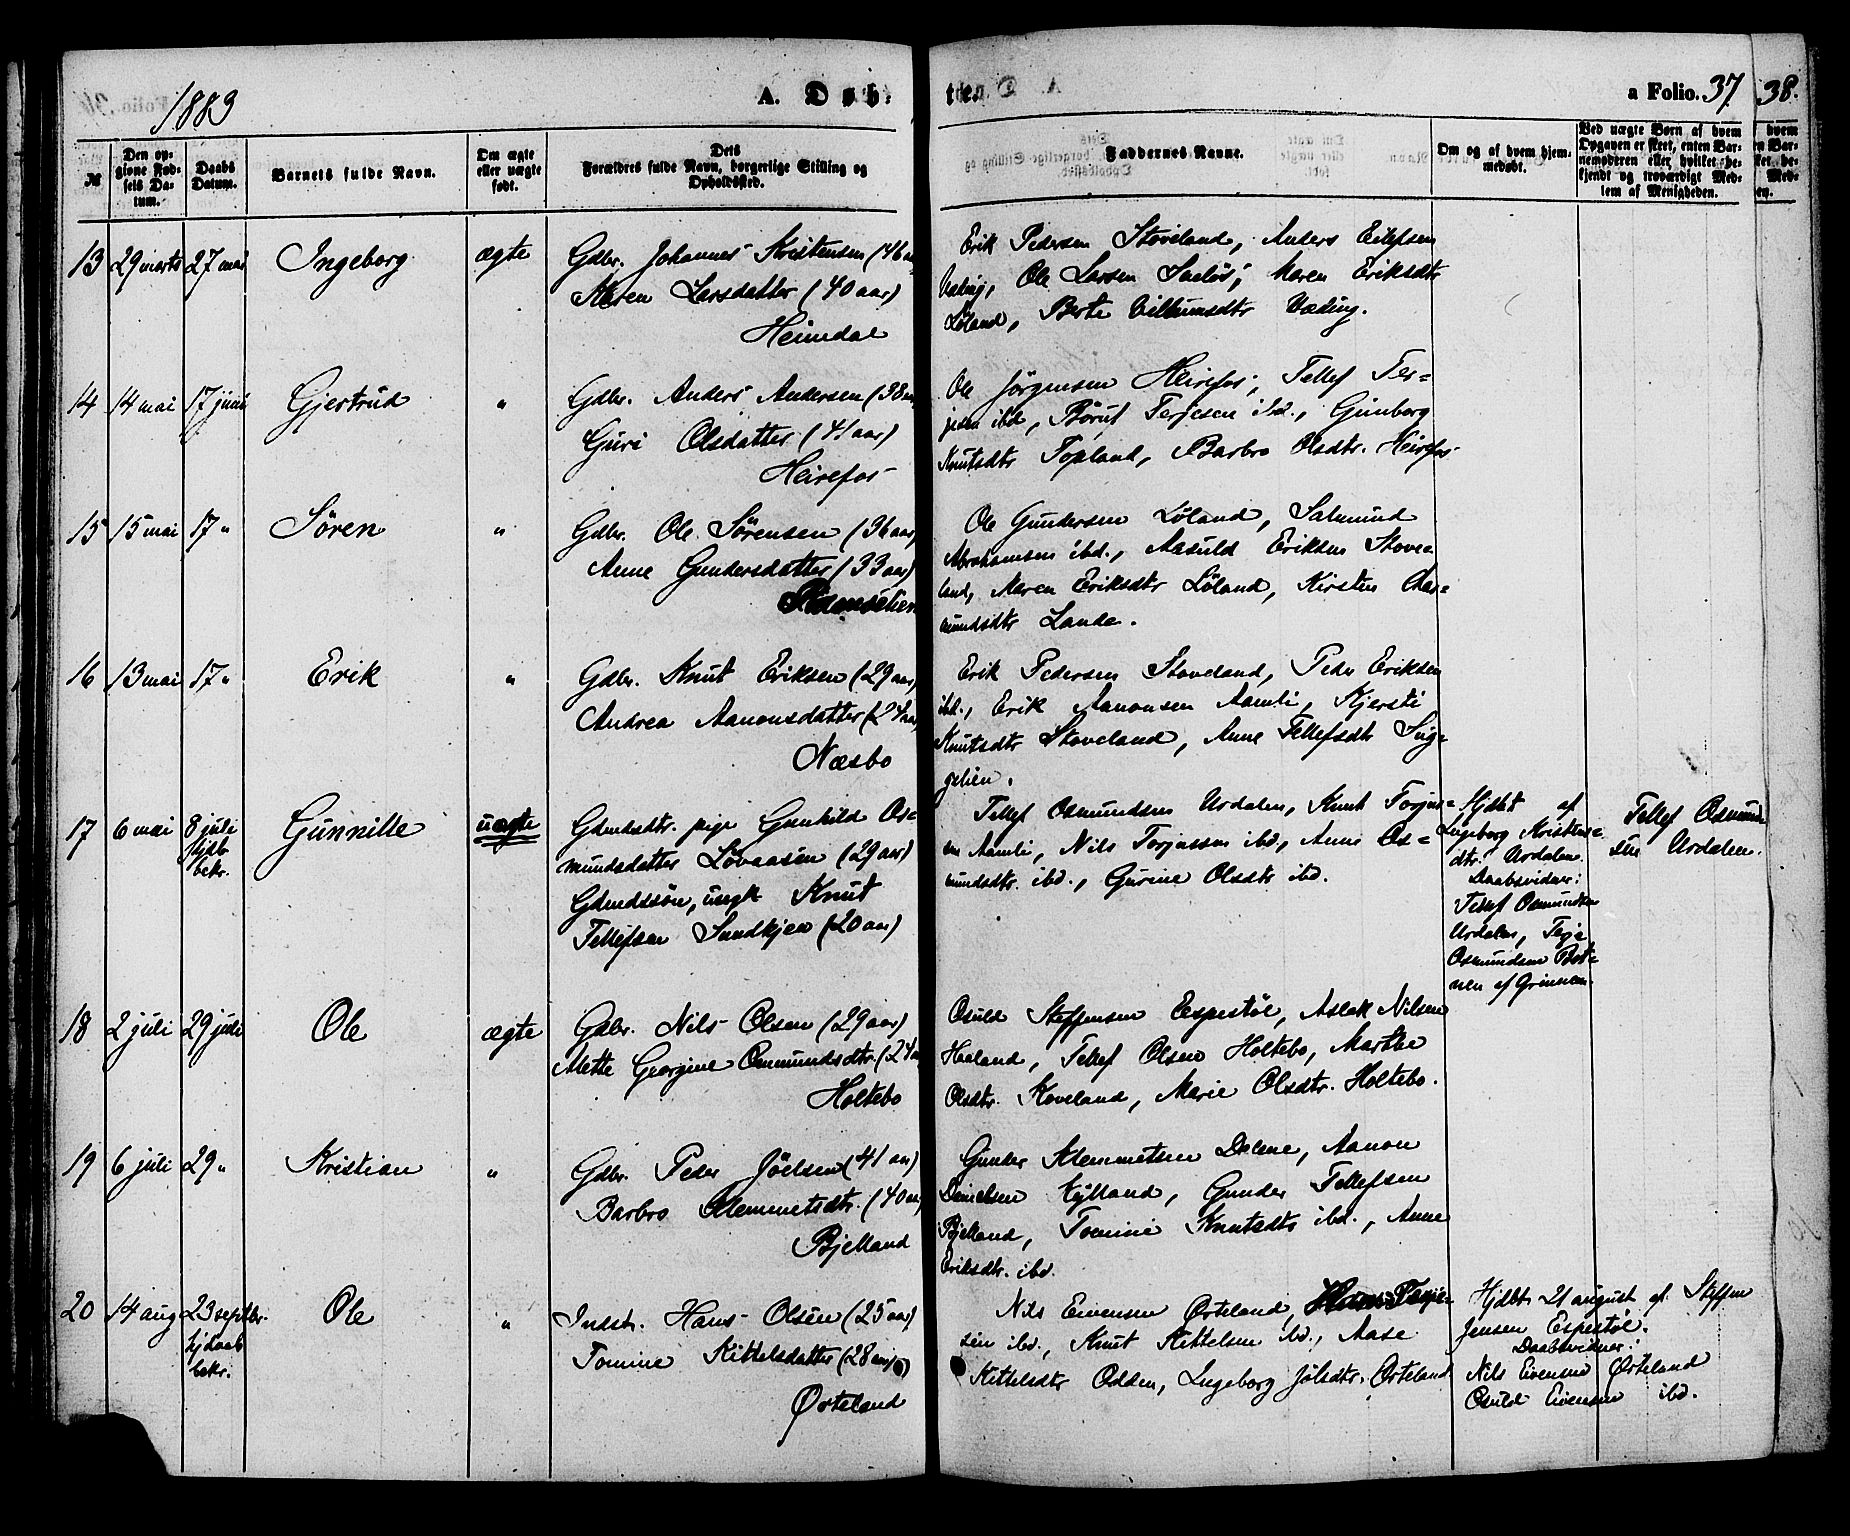 1883
A. Døb.
te.
a Folio. 37.
38.
№
Den opgivne Fødsels Datum.
Daabs Datum.
Barnets fulde Navn.
Om ægte eller uægte født.
Dets Forældres fulde Navn, borgerlige Stilling og Opholdssted.
Faddernes Navne.
Om og af hvem hjemmedøbt.
Ved uægte Børn af hvem Opgaven er skeet, enten Barnemoderen eller hvilket bekjendt og troværdigt Medlem af Menigheden.
13 29 marts 27 mai Ingeborg ægte
Gdbr. Johannes Kristensen (46
Maren Larsdatter (40 aar)
Heimdal
Erik Pedersen Stoveland, Anders Eilefsen
Væting, Ole Larsen, Maren Eriksdtr
Løland, Berte Væting.
14 14 mai 17 juni Gjertrud "
Gdbr. Anders Andersen (38
Guri Olsdatter (41 aar)
Heirefos
Ole Jørgensen Heirefos, Tellef Ter=
jesen ibd, Børut Terjesen ibd., Gunborg
Knutsdtr Topland, Barbro Olsdtr. Heirefos
15 15 mai 17 " Søren "
Gdbr. Ole Sørensen (36 aar)
Anne Gundersdatter (33 aar)
Ole Gundersen Løland, Salmund
Abrahamsen ibd., Aasuld Eriksen Stove=
land, Maren Eriksdtr Løland, Kirsten Aas=
mundsdtr Lande.
16 13 mai 17 " Erik "
Gdbr. Knut Eriksen (29 aar)
Andrea Aanonsdatter (24 aar
Næsbo
Erik Pedersen Stoveland, Peder Eriksen
ibd., Erik Aanonsen Aamli, Kjersti
Knutsdtr Stoveland, Anne Tellefsdtr Sig=
gelien.
17 6 mai 8 juli Gunnille uægte
hjdb.
bekr.
Gdmdsdtr. pige Gunhild Os=
mundsdatter Løvaasen (29 aar)
Gdmdssøn, ungk Knut
Tellefsen Sundkjen (20 aar)
Tellef Osmundsen Urdalen, Knut Torjus=
sen Aamli, Nils Torjussen ibd., Anne Os=
mundsdtr. ibd., Gurine Olsdtr ibd.
Hjdbt af
Ingeborg Kristens=
dtr. Urdalen.
Daabsvidner:
Tellef Osmundsen
Urdalen, Terje
Osmundsen Bot=
nen af
Tellef Osmund=
sen Urdalen.
18 2 juli 29 juli Ole ægte
Gdbr. Nils Olsen (29 aar)
Mette Georgine Osmundsdtr. (24
Holtebo
Osuld Steffensen Espestøl, Aslak Nilsen
Haaland, Tellef Olsen Holtebo, Marthe
Olsdtr. Koveland, Marie Olsdtr. Holtebo.
19 6 juli 29 " Kristian "
Gdbr. Peder Jöelsen (41 aar)
Barbro Klemmetsdtr. (40 aar
Bjelland
Gunder Klemmetsen Dalene, Aanon
Danielsen Kylland, Gunder Tellefsen
Bjelland, Tomine Knutsdtr ibd., Anne
Eriksdtr. ibd.
20 14 aug 23 septbr. Ole "
hjdaab
bekr.
Indst. Hans Olsen (25 aar)
Tomine Kittelsdatter (28 aar)
Ørteland
Nils Eivensen Ørteland, Hans Terje=
sen ibd., Knut Kittelsen ibd., Aase
Kittelsdtr Odden, Ingeborg Jölsdtr. Ørteland
Hjdbt 21 august af Steffen
Jensen Espestøl.
Daabsvidner:
Nils Eivensen Ørteland
Osuld Eivensen ibd.